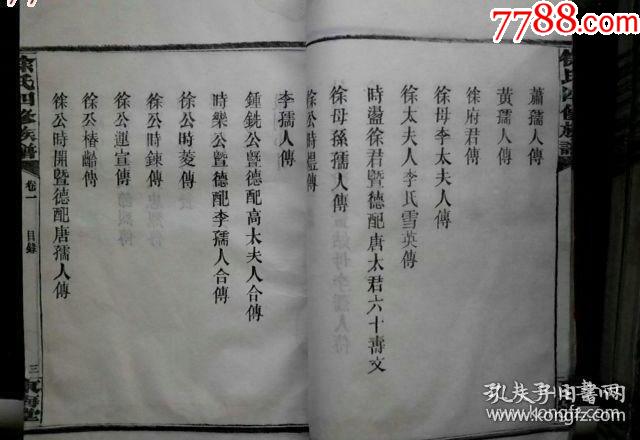 7788.com
徐氏四修族譜
蕭孺人傳
黃孺人傳
徐府君傳
徐母李太夫人傳
徐太夫人李氏雪英傳
時藎徐君暨德配唐太君六十壽文
徐母孫孺人傳
徐公時禮傳
李孺人傳
鍾銑公暨德配高太夫人合傳
時樂公暨德配李孺人合傳
徐公時菱傳
徐公時鍊傳
徐公運宣傳
徐公椿齡傳
徐公時開暨德配唐孺人傳
徐氏四修族譜 卷一 目錄 三 東海堂
孔夫子旧书网
kongfz.com